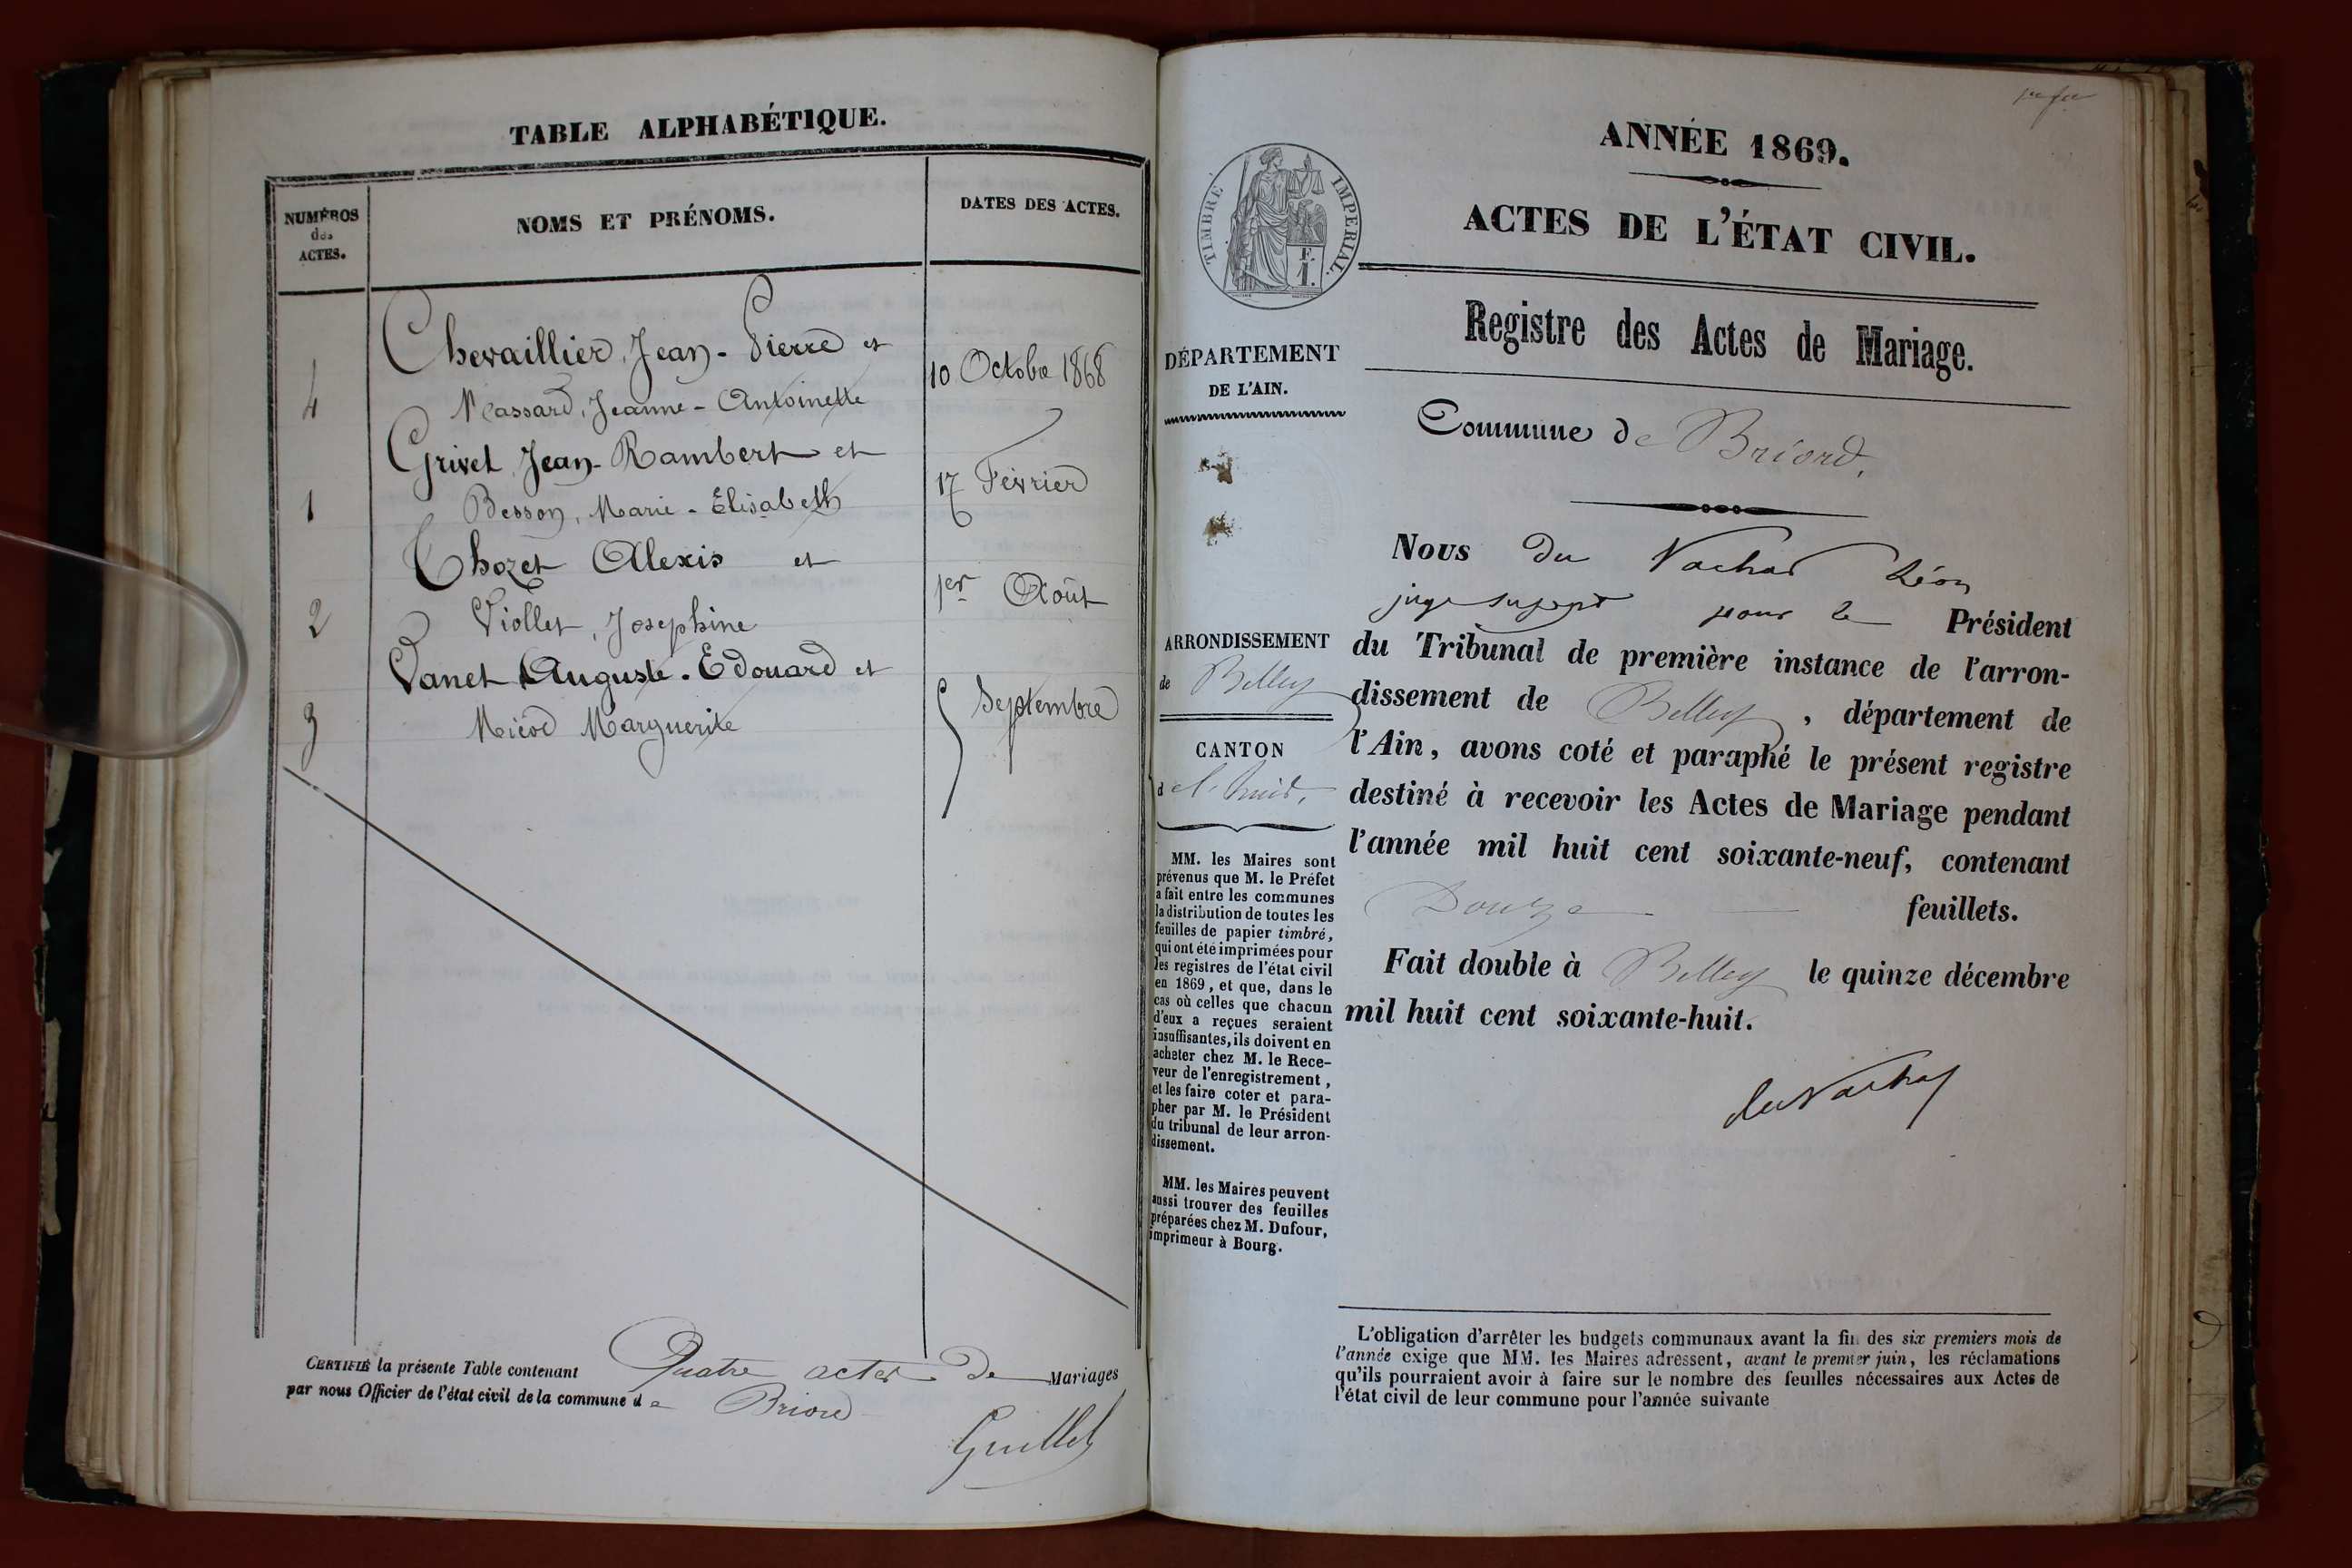 TABLE ALPHABÉTIQUE.
NUMÉROS
des
ACTES.
NOMS ET PRÉNOMS.
DATES DES ACTES.
Chevaillier, Jean-Pierre et
4 Massard, Jeanne-Antoinette 10 Octobre 1868
Grivet Jean-Rambert et
1 Besson, Marie-Elisabeth 17 Février
Thozet Alexis et
2 Viollet, Josephine 1er Août
Vanet Auguste-Edouard et
3 Nicod Marguerite 5 Septembre
CERTIFIÉ la présente Table contenant Quatre actes de Mariages
par nous Officier de l'état civil de la commune de Briord
Guillet
1er fet
ANNÉE 1869.
ACTES DE L'ÉTAT CIVIL.
TIMBRE IMPERIAL.
F.
1.
Registre des Actes de Mariage.
DÉPARTEMENT
DE L'AIN.
Commune de Briord.
Nous du Vachat Léon
juge supp pour le Président
du Tribunal de première instance de l'arron-
dissement de Belley, département de
l'Ain, avons coté et paraphé le présent registre
destiné à recevoir les Actes de Mariage pendant
l'année mil huit cent soixante-neuf, contenant
Douze feuillets.
Fait double à Belley le quinze décembre
mil huit cent soixante-huit.
du Vachat
ARRONDISSEMENT
de Belley
CANTON
de l'huis.
MM. les Maires sont
prévenus que M. le Préfet
a fait entre les communes
la distribution de toutes les
feuilles de papier timbré,
qui ont été imprimées pour
les registres de l'état civil
en 1869, et que, dans le
cas où celles que chacun
d'eux a reçues seraient
insuffisantes, ils doivent en
acheter chez M. le Rece-
veur de l'enregistrement,
et les faire coter et para-
pher par M. le Président
du tribunal de leur arron-
dissement.
MM. les Maires peuvent
aussi trouver des feuilles
préparées chez M. Dufour,
imprimeur à Bourg.
L'obligation d'arrêter les budgets communaux avant la fin des six premiers mois de
l'année exige que MM. les Maires adressent, avant le premier juin, les réclamations
qu'ils pourraient avoir à faire sur le nombre des feuilles nécessaires aux Actes de
l'état civil de leur commune pour l'année suivante